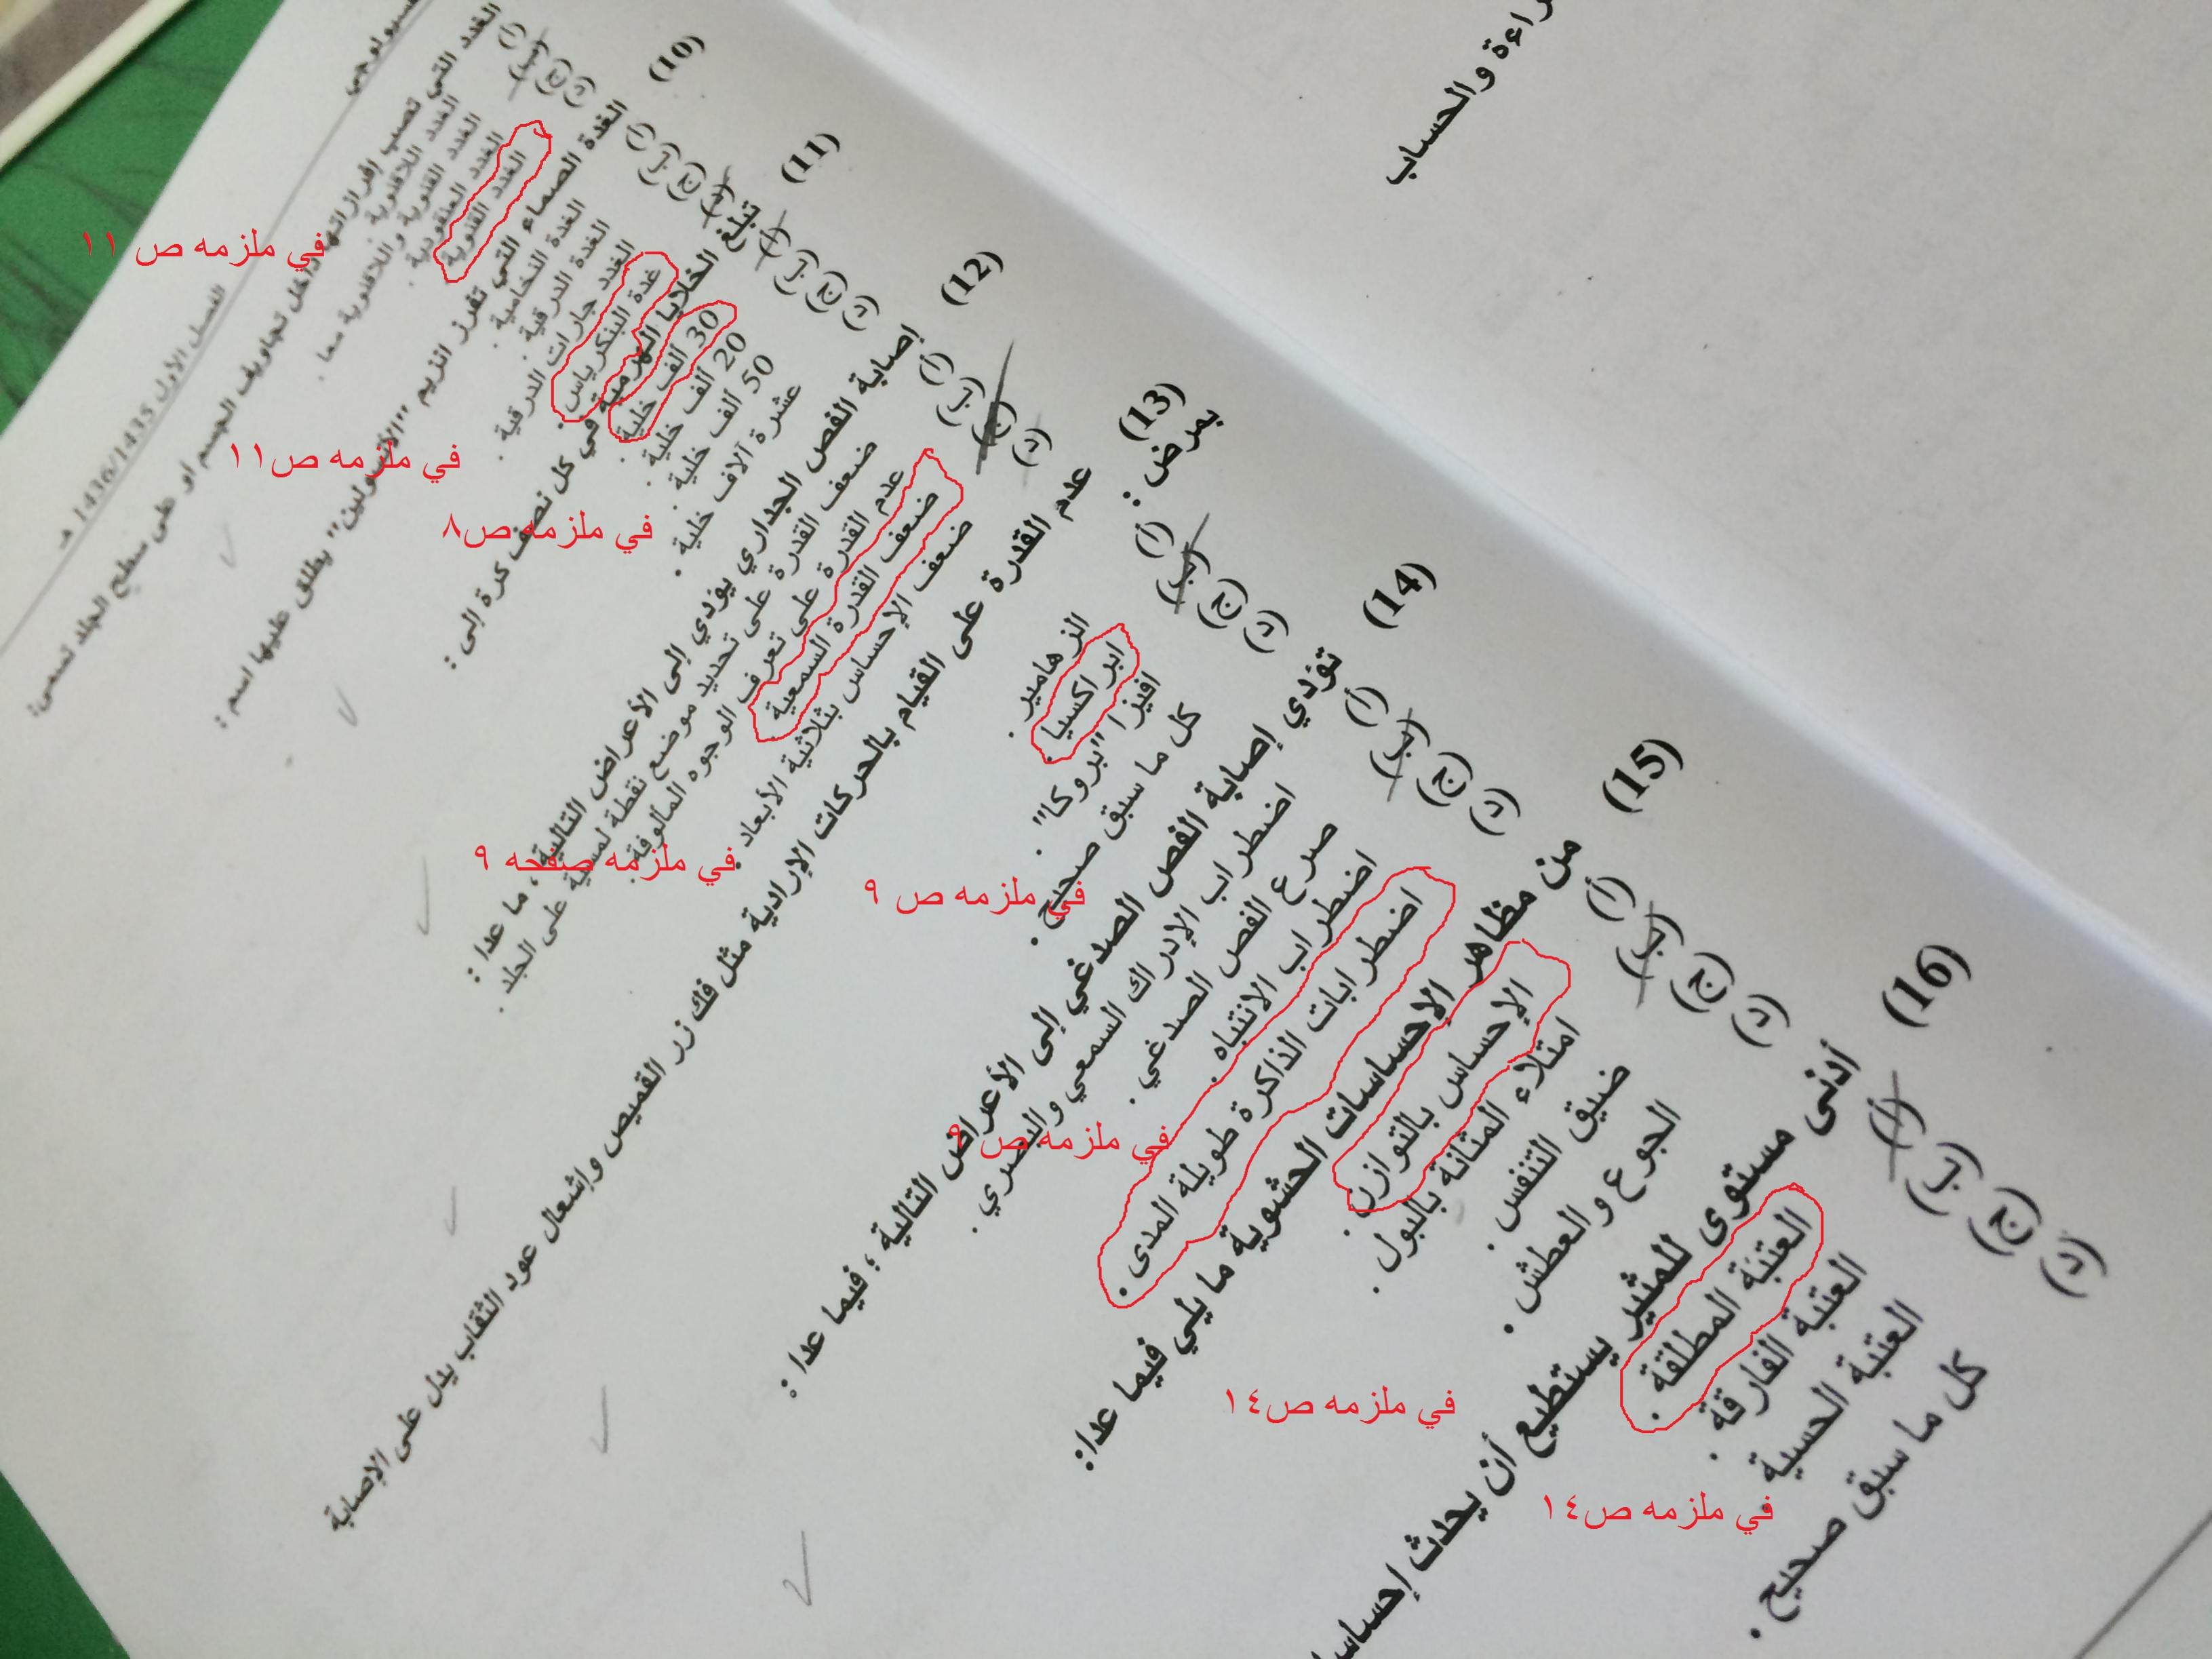 راءة والحساب
سيولوجي
الفصل الأول 1436/1435 هـ
الغدد التي تصب إفرازاتها داخل تجاويف الجسم او على سطح الجلد تسمى:
(أ) الغدد اللاقنوية .
(ب) الغدد القنوية واللاقنوية معا .
(ج) الغدد العنقودية .
(د) الغدد القنوية .
في ملزمه ص ١١
(10) الغدة الصماء التي تفرز انزيم "الانسولين" يطلق عليها اسم :
(أ) الغدة النخامية .
(ب) الغدة الدرقية .
(ج) الغدد جارات الدرقية .
(د) غدة البنكرياس .
في ملزمه ص١١
(11) تبلغ الخلايا الهرمية في كل نصف كرة إلى :
(أ) 30 ألف خلية .
(ب) 20 ألف خلية .
(ج) 50 ألف خلية .
(د) عشرة آلاف خلية .
في ملزمه ص٨
(12) إصابة الفص الجداري يؤدي إلى الأعراض التالية ، ما عدا :
(أ) ضعف القدرة على تحديد موضع نقطة لمسية على الجلد .
(ب) عدم القدرة على تعرف الوجوه المألوفة .
(ج) ضعف القدرة السمعية .
(د) ضعف الإحساس بثلاثية الأبعاد .
في ملزمه صفحه ٩
(13) عدم القدرة على القيام بالحركات الإرادية مثل فك زر القميص وإشعال عود الثقاب يدل على الإصابة
بمرض :
(أ) الزهامير .
(ب) ابراكسيا .
(ج) افيزا "بروكا" .
(د) كل ما سبق صحيح .
في ملزمه ص ٩
(14) تؤدي إصابة الفص الصدغي إلى الأعراض التالية ؛ فيما عدا :
(أ) اضطراب الإدراك السمعي والبصري .
(ب) صرع الفص الصدغي .
(ج) اضطراب الانتباه .
(د) اضطرابات الذاكرة طويلة المدى .
في ملزمه ص ٩
(15) من مظاهر الإحساسات الحشوية ما يلي فيما عدا:
(أ) الإحساس بالتوازن .
(ب) امتلاء المثانة بالبول .
(ج) ضيق التنفس .
(د) الجوع والعطش .
في ملزمه ص١٤
(16) أدنى مستوى للمثير يستطيع أن يحدث إحساسا
(أ) العتبة المطلقة .
(ب) العتبة الفارقة .
(ج) العتبة الحسية .
(د) كل ما سبق صحيح .
في ملزمه ص١٤